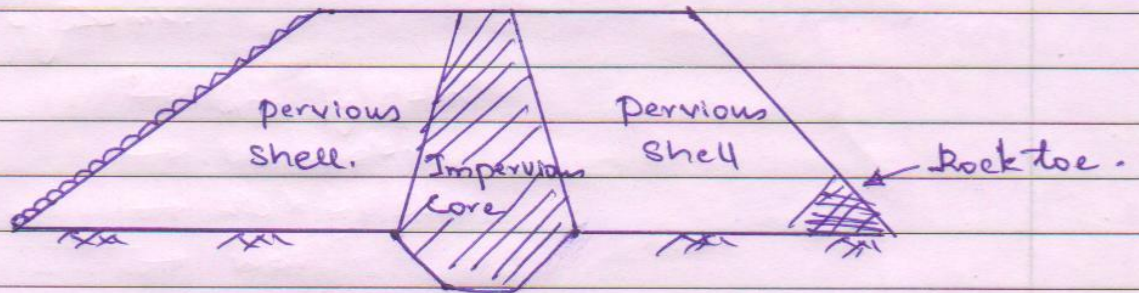 pervious
shell.
Impervious
core
Pervious
Shell
Rock toe.